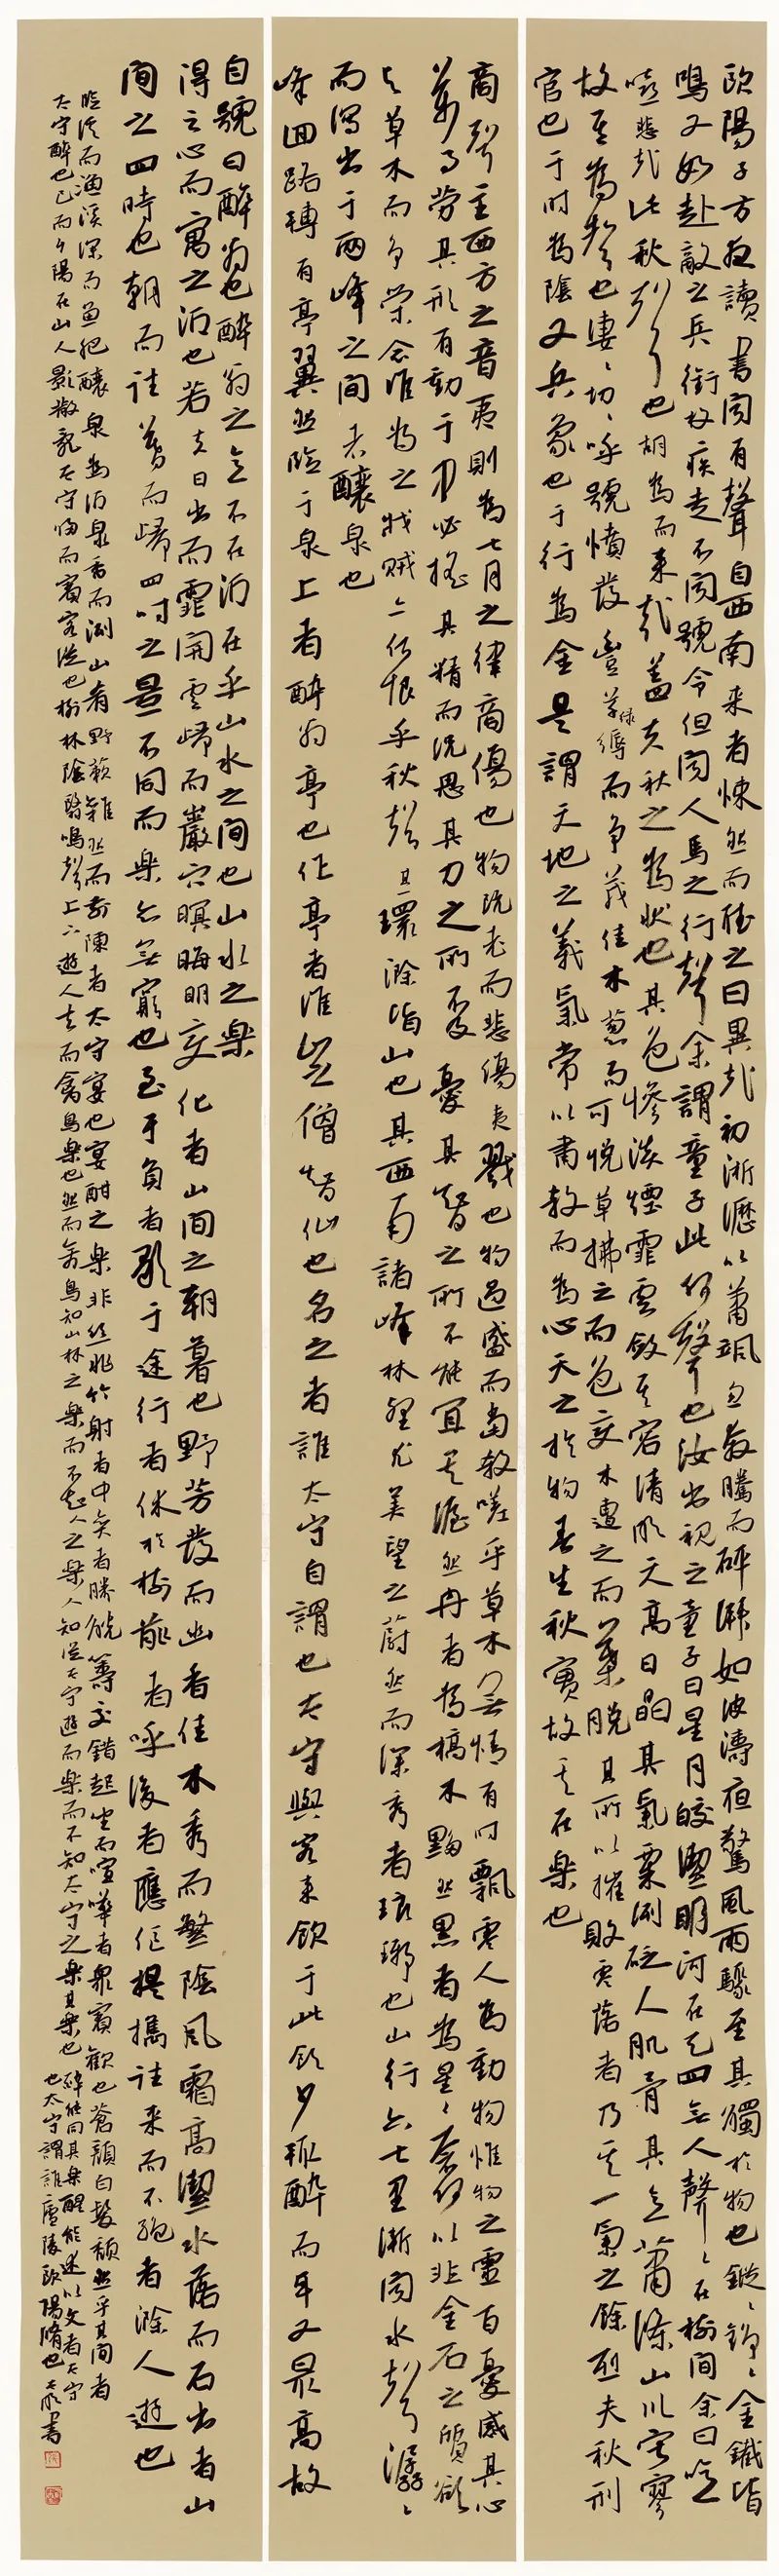 欧陽子方夜讀書聞有聲自西南来者悚然而聽之曰異哉初淅瀝以蕭颯忽奔騰而砰湃如波濤夜驚風雨驟至其觸於物也鏦〻錚〻金鐵皆
鳴又如赴敵之兵銜枚疾走不聞號令但聞人馬之行聲余謂童子此何聲也汝出視之童子曰星月皎潔明河在天四無人聲〻在樹間余曰噫
嘻悲哉此秋聲也胡為而来哉蓋夫秋之為狀也其色慘淡煙霏雲斂其容清明天高日晶其氣栗洌砭人肌骨其意蕭條山川寂寥
故其為聲也凄〻切〻呼號憤發豐草綠縟而争茂佳木葱而可悦草拂之而色变木遭之而葉脱其所以摧敗零落者乃其一氣之餘烈夫秋刑
官也于时為陰又兵象也于行為金是謂天地之義氣常以肅殺而為心天之於物春生秋實故其在樂也
商聲主西方之音夷則為七月之律商傷也物既老而悲傷夷戮也物過盛而當殺嗟乎草木無情有时飄零人為動物惟物之靈百憂感其心
萬事勞其形有動于中必摇其精而况思其力之所不及憂其智之所不能宜其渥然丹者為槁木黟然黑者為星〻奈何以非金石之質欲
與草木而争榮念誰為之戕賊亦何恨乎秋聲環滁皆山也其西南諸峰林壑尤美望之蔚然而深秀者琅琊也山行六七里漸聞水聲潺〻
而瀉出于兩峰之間者釀泉也
峰回路轉有亭翼然臨于泉上者醉翁亭也作亭者誰山之僧智仙也名之者誰太守自謂也太守與客来飲于此飲少輒醉而年又最高故
自號曰醉翁也醉翁之意不在酒在乎山水之間也山水之樂
得之心而寓之酒也若夫日出而霏開雲歸而巖穴暝晦明变化者山間之朝暮也野芳發而幽香佳木秀而繁陰風霜高潔水落而石出者山
間之四時也朝而往暮而歸四时之景不同而樂亦無窮也至于負者歌于途行者休於樹前者呼後者應伛提攜往来而不絶者滁人遊也
臨溪而漁溪深而魚肥釀泉為酒泉香而洌山肴野蔌雜然而前陳者太守宴也宴酣之樂非丝非竹射者中奕者勝觥籌交錯起坐而喧嘩者衆賓歡也蒼顔白髮頹然乎其間者
太守醉也已而夕陽在山人影散亂太守歸而賓客從也樹林陰翳鳴聲上下遊人去而禽鳥樂也然而禽鳥知山林之樂而不知人之樂人知從太守遊而樂而不知太守之樂其樂也醉能同其樂醒能述以文者太守
也太守謂誰廬陵欧陽脩也書